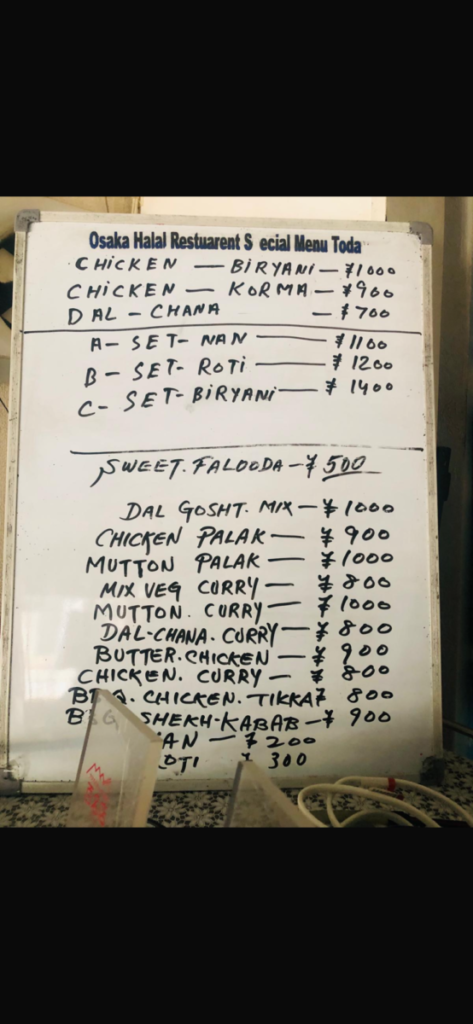 Osaka Halal Restuarent S ecial Menu Toda
CHICKEN — BIRYANI — ¥1000
CHICKEN — KORMA — ¥900
DAL - CHANA — ¥700
A - SET - NAN — ¥1100
B - SET - ROTI — ¥1200
C - SET - BIRYANI — ¥1400
SWEET. FALOODA - ¥500
DAL GOSHT. MIX - ¥1000
CHICKEN PALAK — ¥900
MUTTON PALAK — ¥1000
MIX VEG CURRY — ¥800
MUTTON. CURRY — ¥1000
DAL-CHANA. CURRY — ¥800
BUTTER. CHICKEN — ¥900
CHICKEN. CURRY — ¥800
CHICKEN. TIKKA ¥800
SHEKH-KABAB - ¥900
AN — ¥200
OTI ¥300